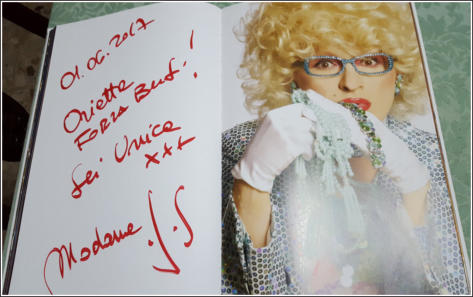 01.06.2017
Orietta
FORZA !
Sei Unica
xxx
Madame J.S